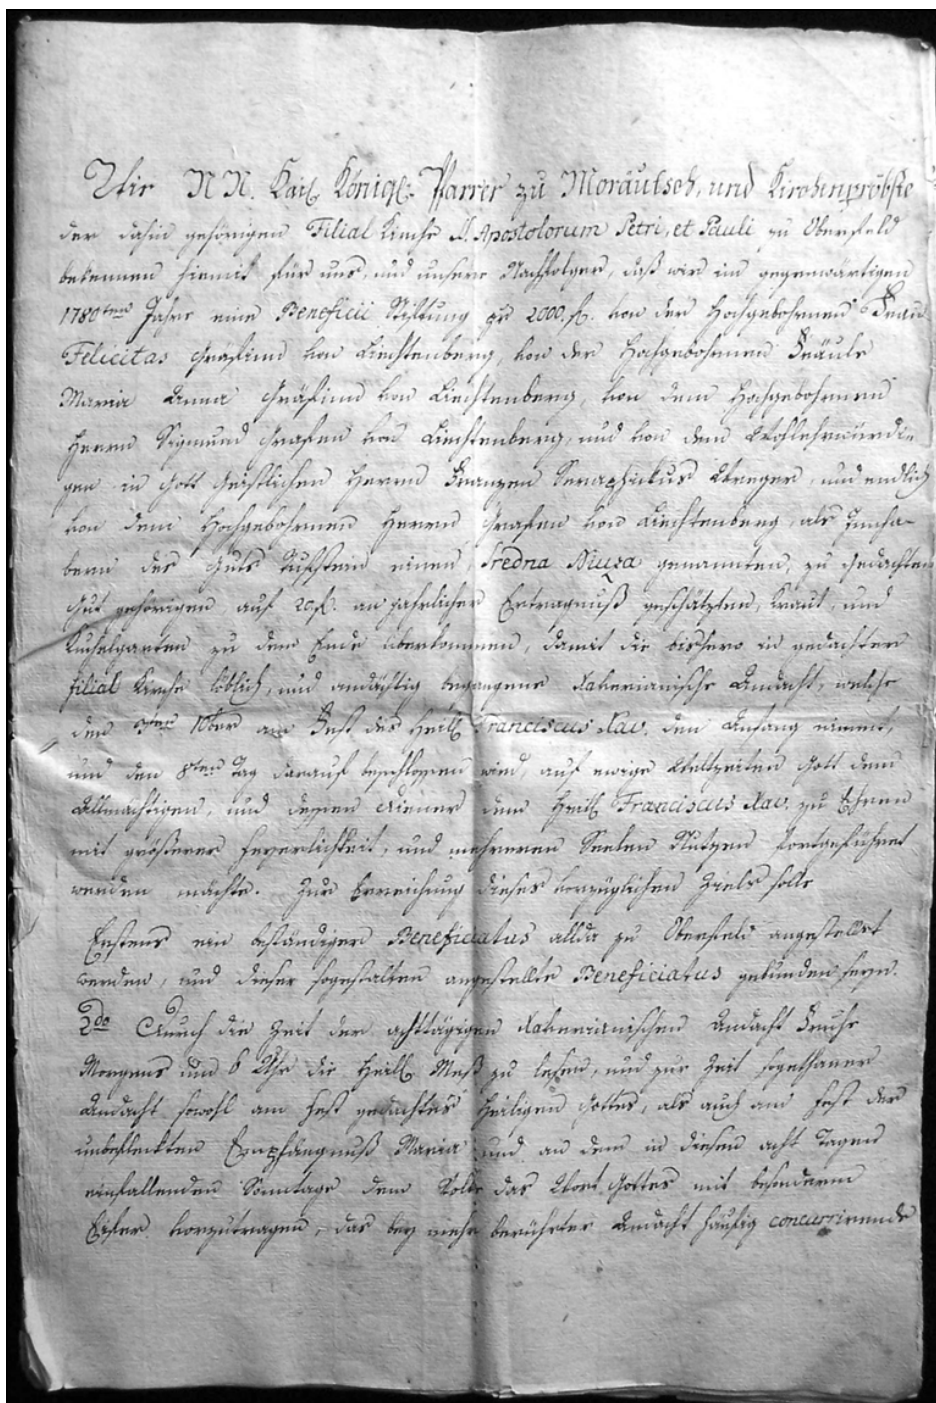 Wir N N. Kais. Königl: Pfarrer zu Moräutsch, und Kirchenpröbste
der dahin gehörigen Filial Kirche S. Apostolorum Petri, et Pauli zu Oberfeld
bekennen hiemit für uns, und unsere Nachfolger, daß wir im gegenwärtigen
1780ten Jahre eine Beneficii Stiftung zu 2000. fl. von der Hochgebohrnen Frau
Felicitas Gräfinn von Liechtenberg, von der Hochgebohrnen Fräule
Maria Anna Gräfinn von Liechtenberg, von dem Hochgebohrnen
Herrn Sigmund Grafen von Liechtenberg, und von dem Wohlehrwürdi-
gen in Gott Geistlichen Herrn Franzen Seraphikus Weeger, und endlich
von dem Hochgebohrnen Herrn Grafen von Liechtenberg, als Innha-
bern des Guts Tufstein einen Sredna Niusa genannten, zu gedachten
Gut gehörigen, auf 20 fl. an jahrlicher Ertragnuß geschätzten, Kraut, und
Kuchelgarten zu dem Ende überkommen, damit die bishero in gedachter
filial Kirche löblich, und andächtig begangene Xaverianische Andacht, welche
den 3ten 10ber am Fest des Heill. Franciscus Xav. den Anfang nimmt,
und den 8ten Tag darauf beschlossen wird, auf ewige Weltzeiten Gott dem
Allmächtigen, und dessen Diener dem Heill. Franciscus Xav. zu Ehren
mit größerer Feyerlichkeit, und mehreren Seelen Nutzen fortgeführet
werden möchte. Zur Erreichung dieses vorzüglichen Ziels solle
Erstens ein beständiger Beneficiatus allda zu Oberfeld angestellet
werden, und dieser sogestalten angestellte Beneficiatus gebunden seyn.
2do Durch die Zeit der achttägigen Xaverianischen Andacht Fruhe
Morgens um 6 Uhr die Heill. Meß zu lesen, und zur Zeit sogethaner
Andacht sowohl am Fest gedachtes Heiligen Gottes, als auch am Fest der
unbefleckten Empfängnuß Maria und an dem in diesen acht Tagen
einfallenden Sonntage dem Volke das Wort Gottes mit besonderm
Eifer vorzutragen, das bey mehr berührter Andacht häufig concurrirende